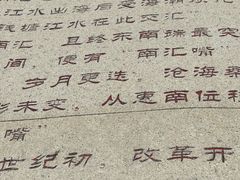 江水出海后受海
钱塘江水在此交汇
南汇 且终东南端最突
间，便有“南汇嘴”
岁月更迭，沧海桑
形未变。从惠南位移
嘴
世纪初，改革开